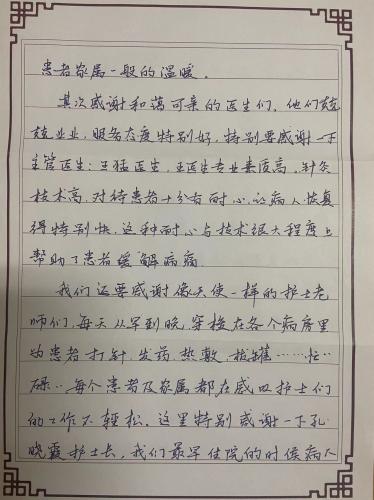 患者家属一般的温暖。
其次感谢和蔼可亲的医生们，他们兢
兢业业，服务态度特别好，特别要感谢一下
主管医生：王猛医生，王医生专业素质高，针灸
技术高，对待患者十分有耐心，的病人恢复
得特别快，这种耐心与技术很大程度上
帮助了患者缓解病痛
我们还要感谢像天使一样的护士老
师们，每天从早到晚，穿梭在各个病房里
为患者打针，发药，热敷，拔罐……忙
碌..每个患者及家属都在感叹护士们
的工作不轻松，这里特别感谢一下孔
晓霞护士长，我们最早住院的时候病人